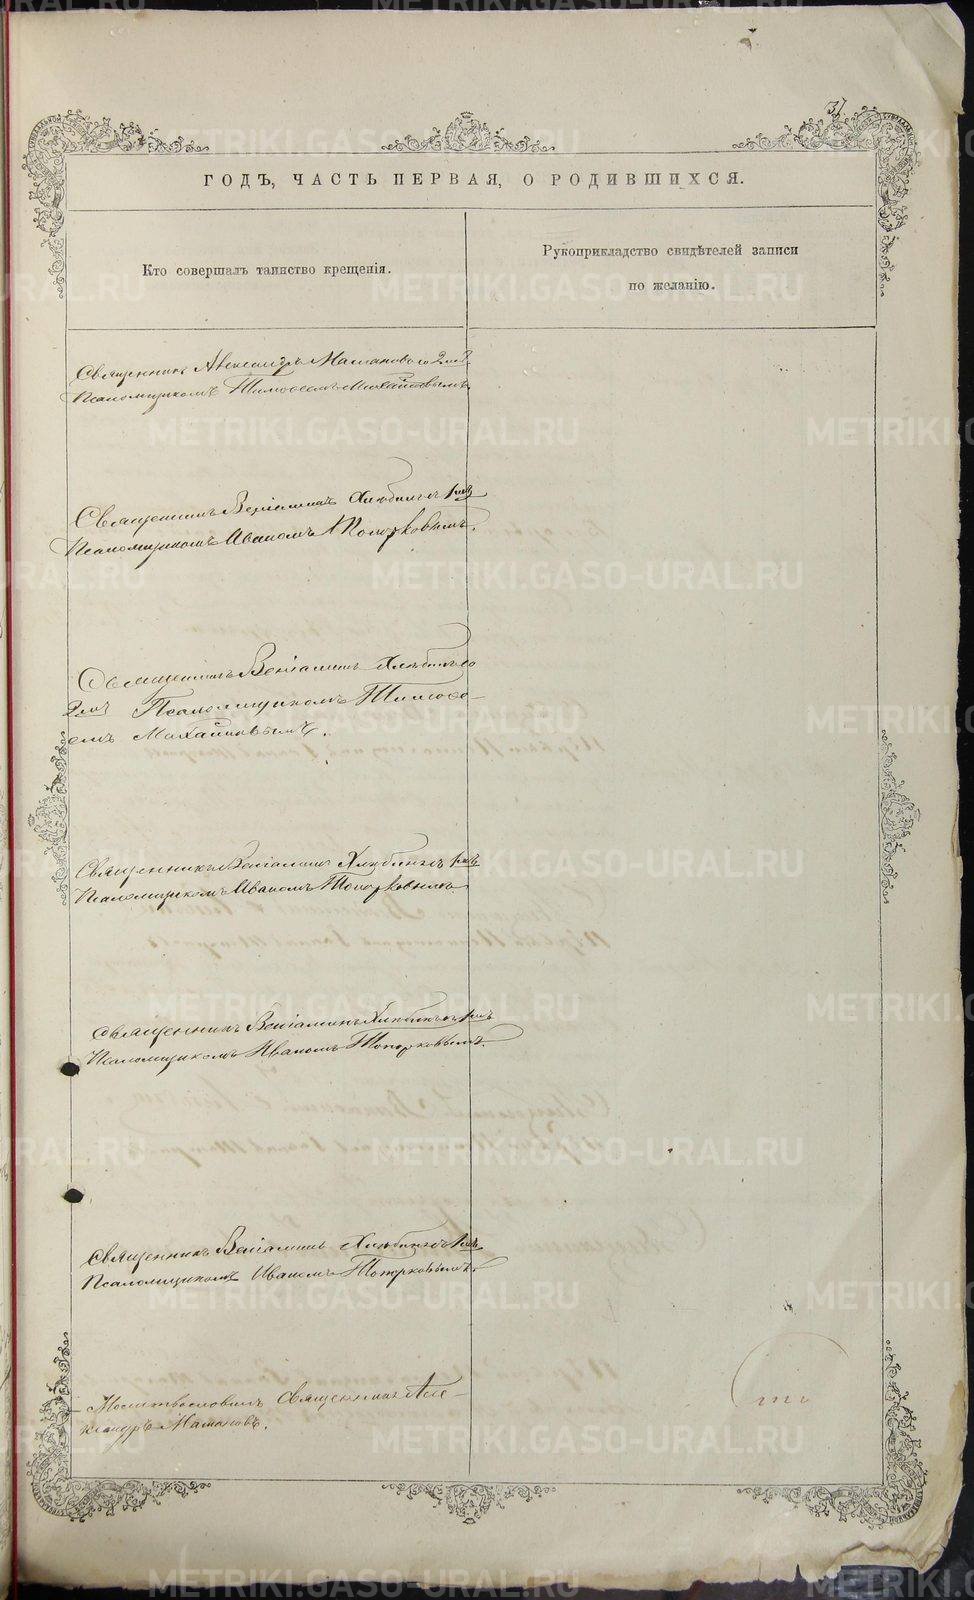 31
ГОДЪ, ЧАСТЬ ПЕРВАЯ, О РОДИВШИХСЯ.
Кто совершалъ таинство крещенія.
Рукоприкладство свидѣтелей записи
по желанію.
Священникъ Александръ Мамановъ со 2мъ
Псаломщикомъ Тимоѳеемъ Михайловымъ
Священникъ Веніаминъ Хлѣбинъ съ 1мъ
Псаломщикомъ Иваномъ Топорковымъ.
Священникъ Веніаминъ Хлѣбинъ со
2мъ Псаломщикомъ Тимоѳе-
емъ Михайловымъ.
Священникъ Веніаминъ Хлѣбинъ съ 1мъ
Псаломщикомъ Иваномъ Топорковымъ
Священникъ Веніаминъ Хлѣбинъ съ 1мъ
Псаломщикомъ Иваномъ Топорковымъ.
Священникъ Веніаминъ Хлѣбинъ съ 1мъ
Псаломщикомъ Иваномъ Топорковымъ.
Молитвословилъ Священникъ Але-
ксандръ Мамановъ.
METRIKI.GASO-URAL.RU